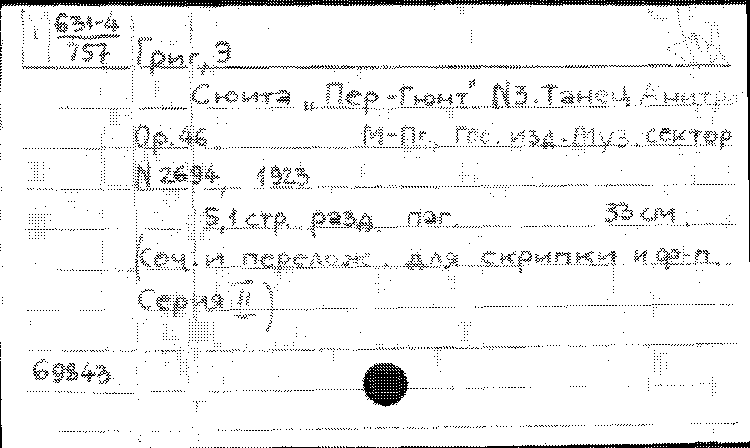 631-4
757
Григ, Э
Сюита „Пер-Гюнт" N3. Танец Анитры
Ор. 46 М-Пг., Гос. изд. Муз. сектор
N 2694, 1923
5,1 стр. разд. паг. 33 см.
(Соч. и перелож. для скрипки и ф-п.
Серия II)
69843